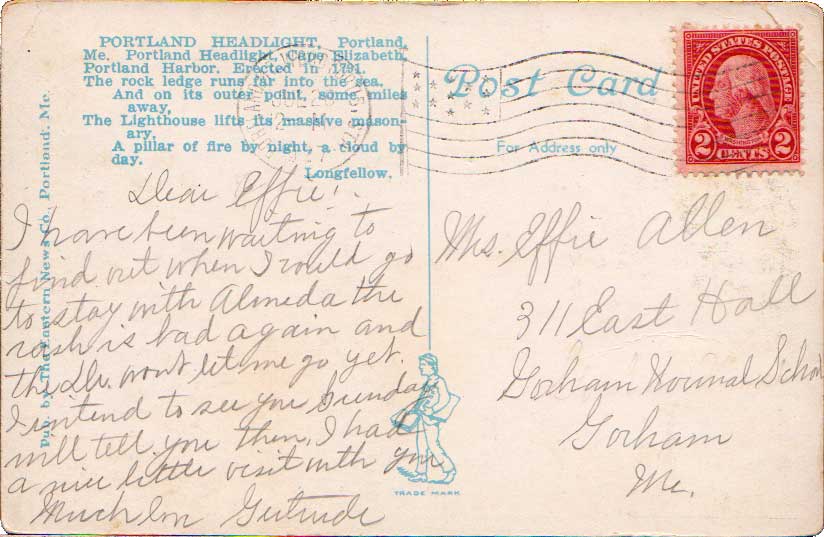 PORTLAND HEADLIGHT, Portland,
Me. Portland Headlight, Cape Elizabeth,
Portland Harbor. Erected in 1791.
The rock ledge runs far into the sea,
And on its outer point, some miles
away,
The Lighthouse lifts its massive mason-
ary,
A pillar of fire by night, a cloud by
day.
Longfellow.
Pub. by The Eastern News Co., Portland, Me.
Dear Effie!
I have been waiting to
find out when I could go
to stay with Almeda the
rash is bad again and
the Dr. wont let me go yet.
I intend to see you Sunday
will tell you then. I had
a nice little visit with you
Much Love Gertrude
Post Card
For Address only
UNITED STATES POSTAGE
WASHINGTON
2 CENTS 2
Mrs. Effie Allen
311 East Hall
Gorham Normal School
Gorham
Me.
TRADE MARK